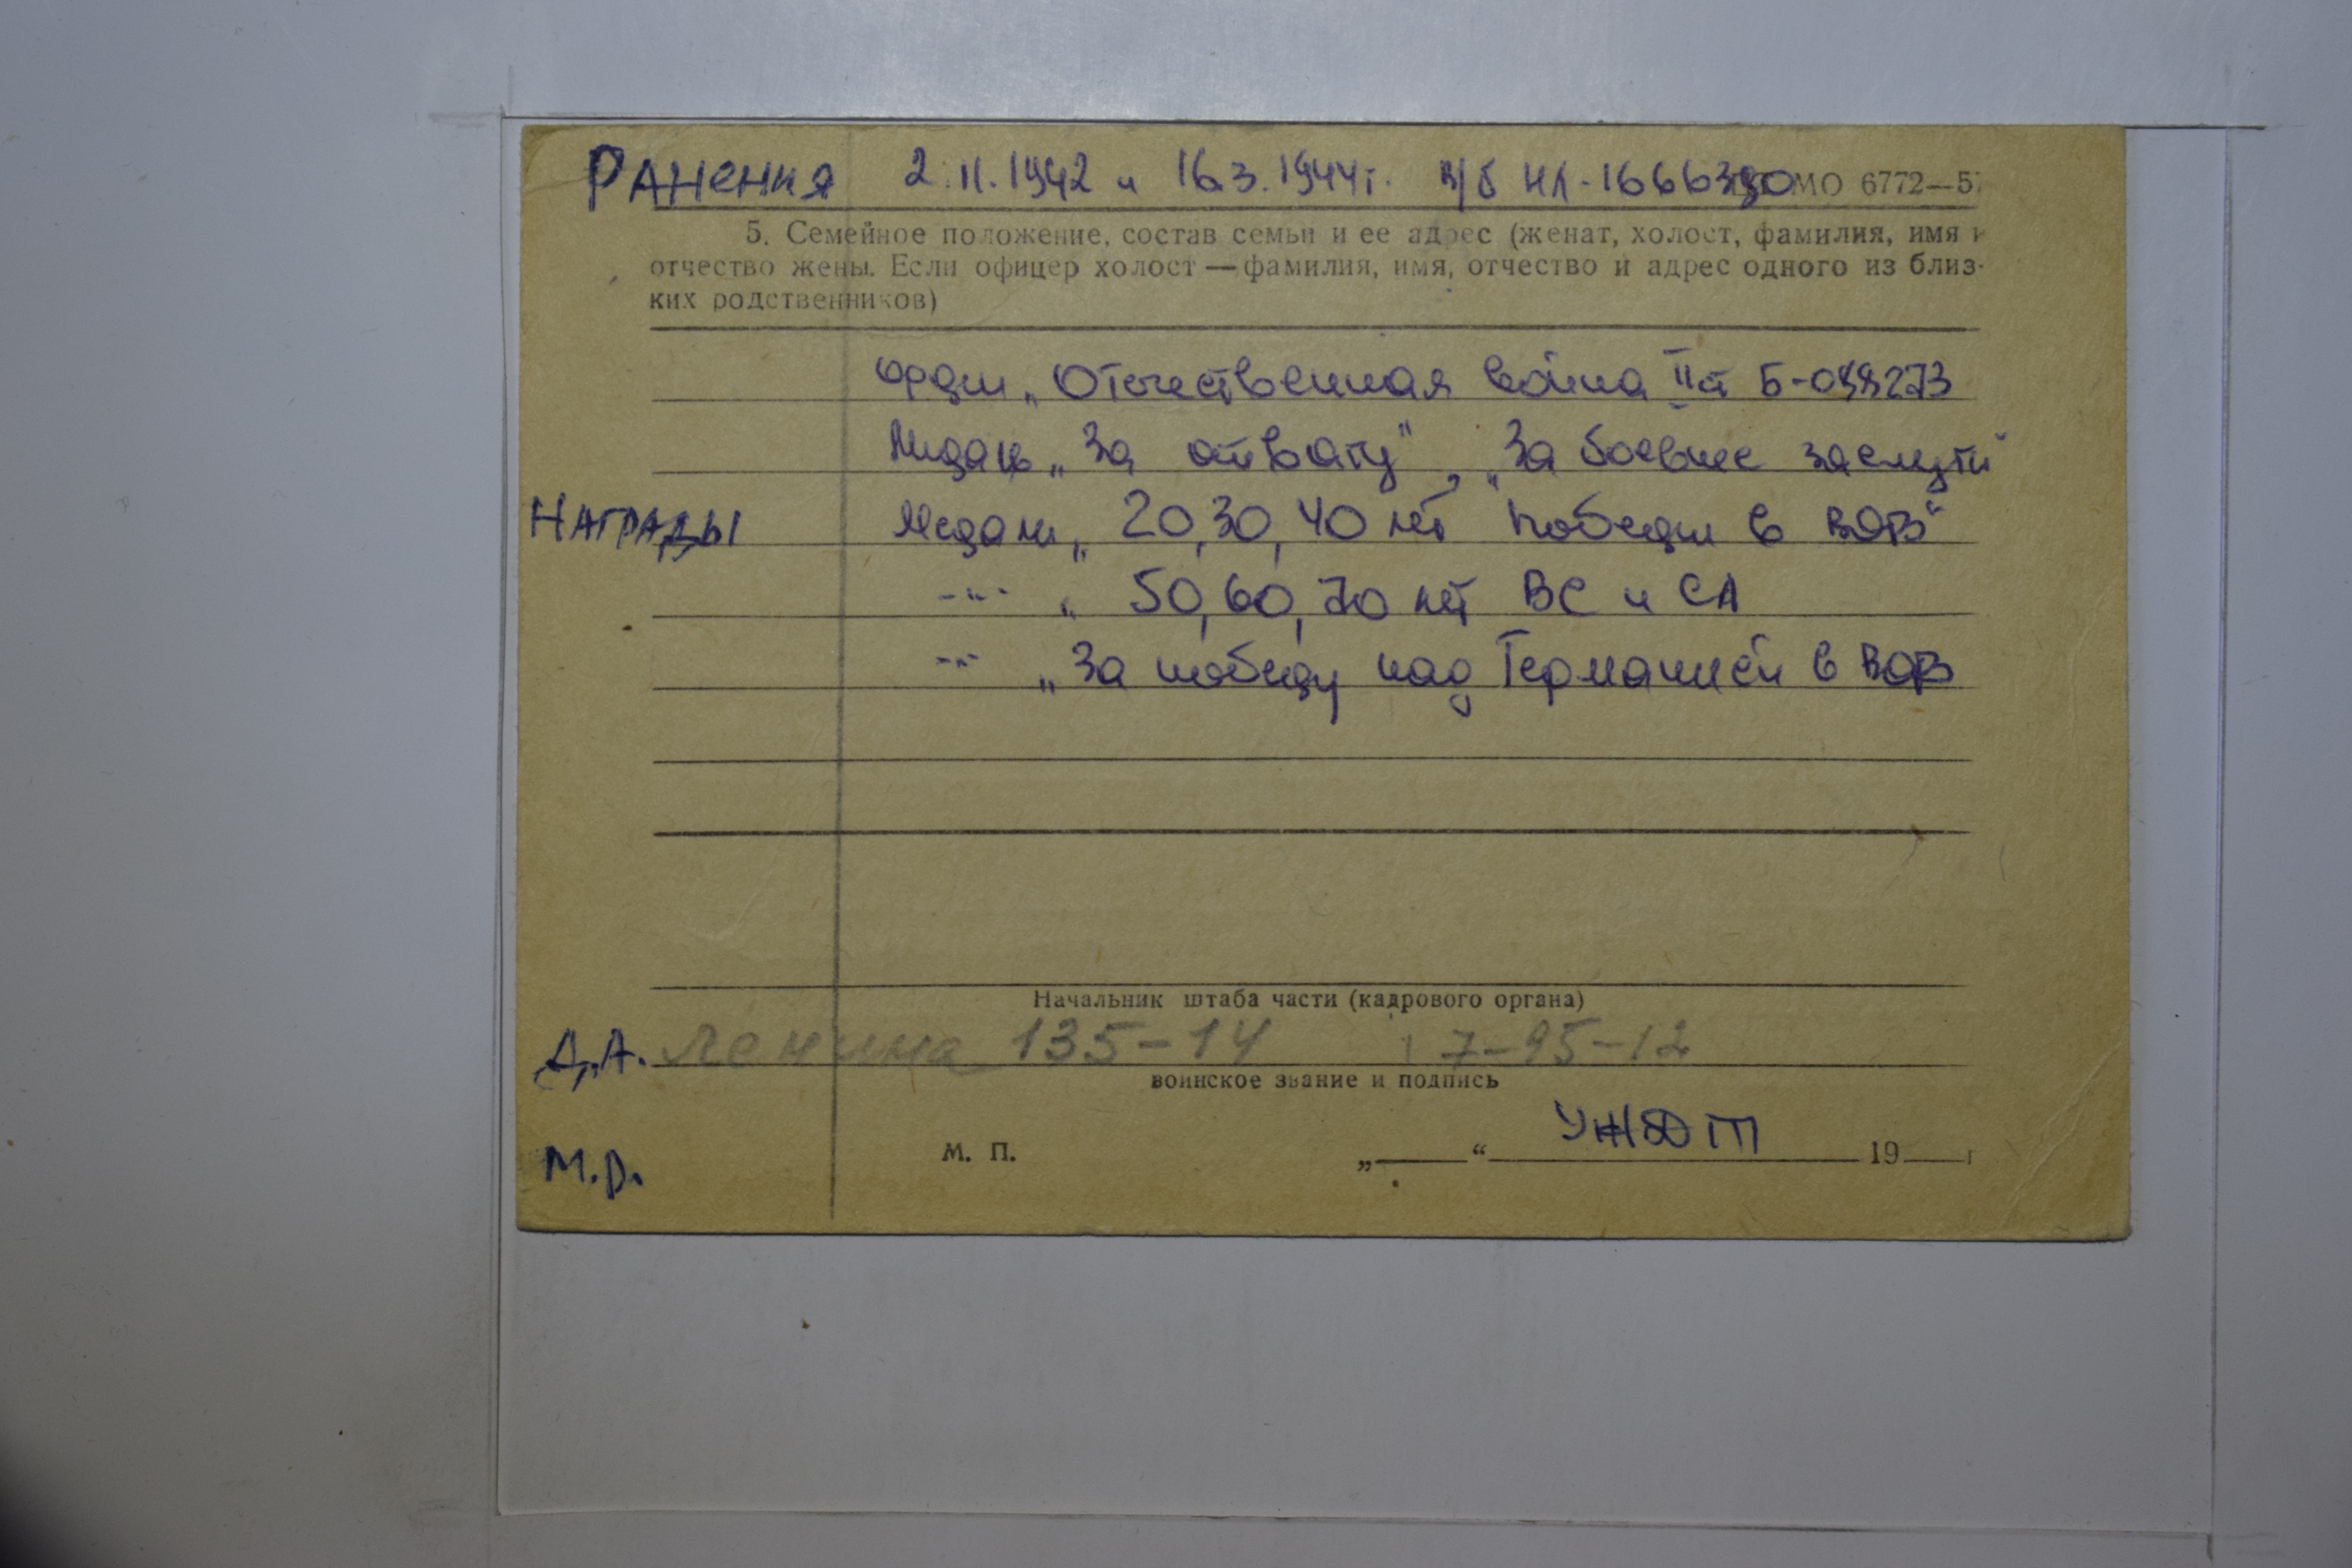 РАНЕНИЯ 2.11.1942 и 16.3.1944г. в/б НЛ-1666390 МО 6772—57
5. Семейное положение, состав семьи и ее адрес (женат, холост, фамилия, имя и
отчество жены. Если офицер холост — фамилия, имя, отчество и адрес одного из близ-
ких родственников)
Орден „Отечественная война II ст Б-
Медаль „За отвагу", „За боевые заслуги"
НАГРАДЫ Медали „20, 30, 40 лет Победы в ВОВ"
-"- „ 50, 60, 70 лет ВС и СА
-"- „За победу над Германией в ВОВ
Начальник штаба части (кадрового органа)
Д.А. Ленина 135-14 7-95-12
воинское звание и подпись
УЖДТ
М.Р. М. П. „ “ 19 г